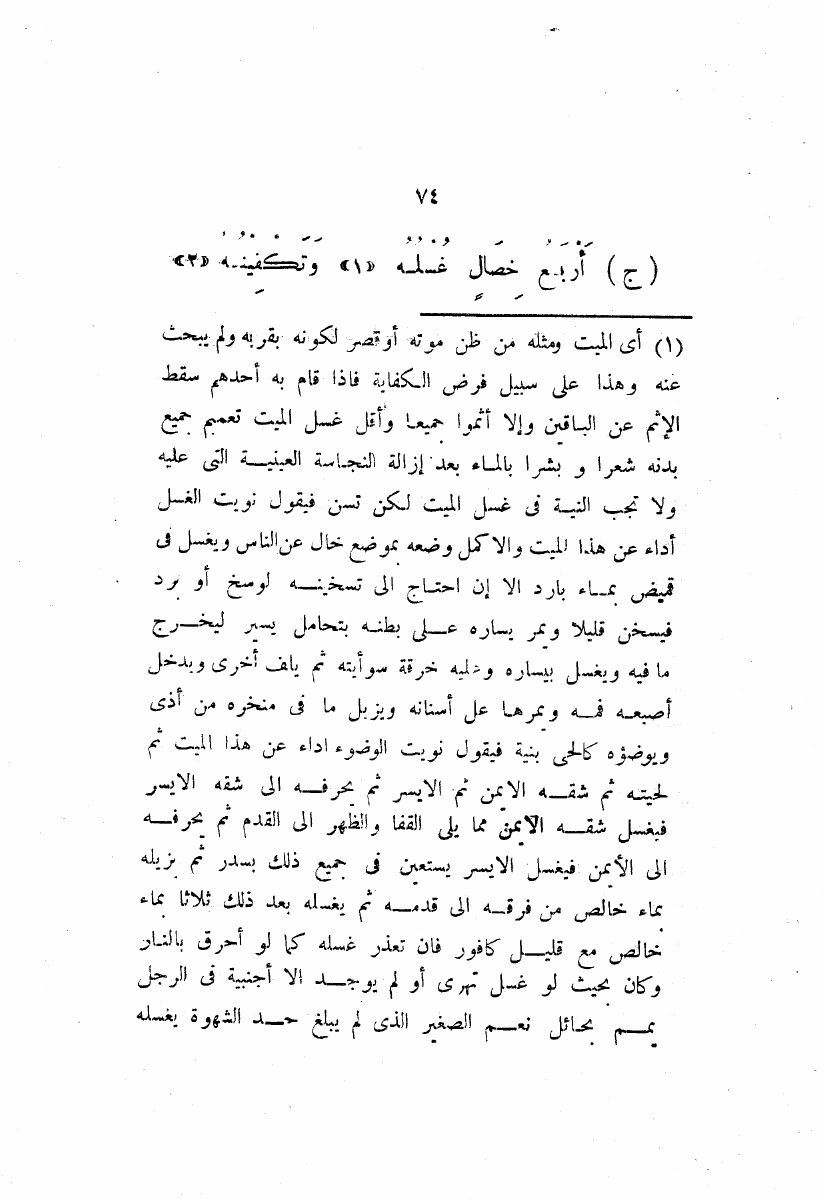 ٧٤
(ج) أَرْبَعُ خِصَالٍ غُسْلُهُ «١» وَتَكْفِينُهُ «٢»
(١) أى الميت ومثله من ظن موته أوقصر لكونه بقربه ولم يبحث
عنه وهذا على سبيل فرض الكفاية فاذا قام به أحدهم سقط
الإثم عن الباقين وإلا أثموا جميعا وأقل غسل الميت تعميم جميع
بدنه شعرا و بشرا بالماء بعد إزالة النجاسة العينية التى عليه
ولا تجب النية فى غسل الميت لكن تسن فيقول نويت الغسل
أداء عن هذا الميت والاكمل وضعه بموضع خال عن الناس ويغسل فى
قميص بماء بارد الا إن احتاج الى تسخينه لوسخ أو برد
فيسخن قليلا ويمر يساره على بطنه بتحامل يسير ليخرج
ما فيه ويغسل بيساره وعليه خرقة سوأيته ثم يلف أخرى ويدخل
أصبعه فمه ويمرها على أسنانه ويزيل ما فى منخره من أذى
ويوضؤه كالحى بنية فيقول نويت الوضوء اداء عن هذا الميت ثم
لحيته ثم شقه الايمن ثم الايسر ثم يحرفه الى شقه الايسر
فيغسل شقه الايمن مما يلى القفا والظهر الى القدم ثم يحرفه
الى الأيمن فيغسل الايسر يستعين فى جميع ذلك بسدر ثم يزيله
بماء خالص من فرقه الى قدمه ثم يغسله بعد ذلك ثلاثا بماء
خالص مع قليل كافور فان تعذر غسله كما لو أحرق بالنار
وكان بحيث لو غسل تهرى أو لم يوجد الا أجنبية فى الرجل
يمم بحائل نعم الصغير الذى لم يبلغ حد الشهوة يغسله